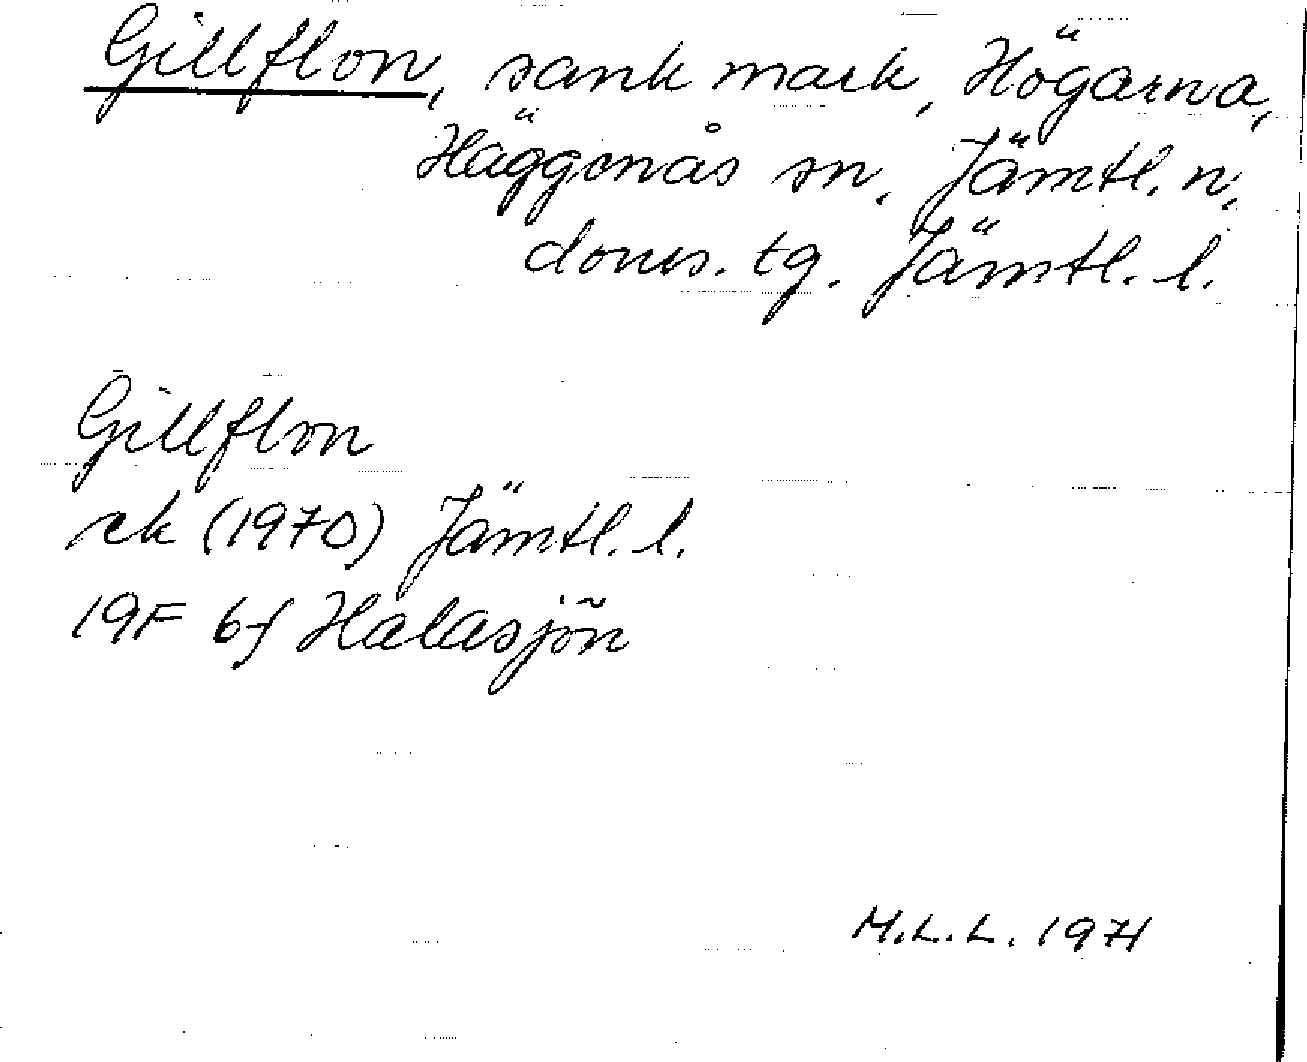 Gillflon, sank mark, Högarna,
Häggenås sn, Jämtl. n.
doms. tg. Jämtl. l.
Gillflon
ek (1970) Jämtl. l.
19F 6f Halasjön
M.L.L. 1971